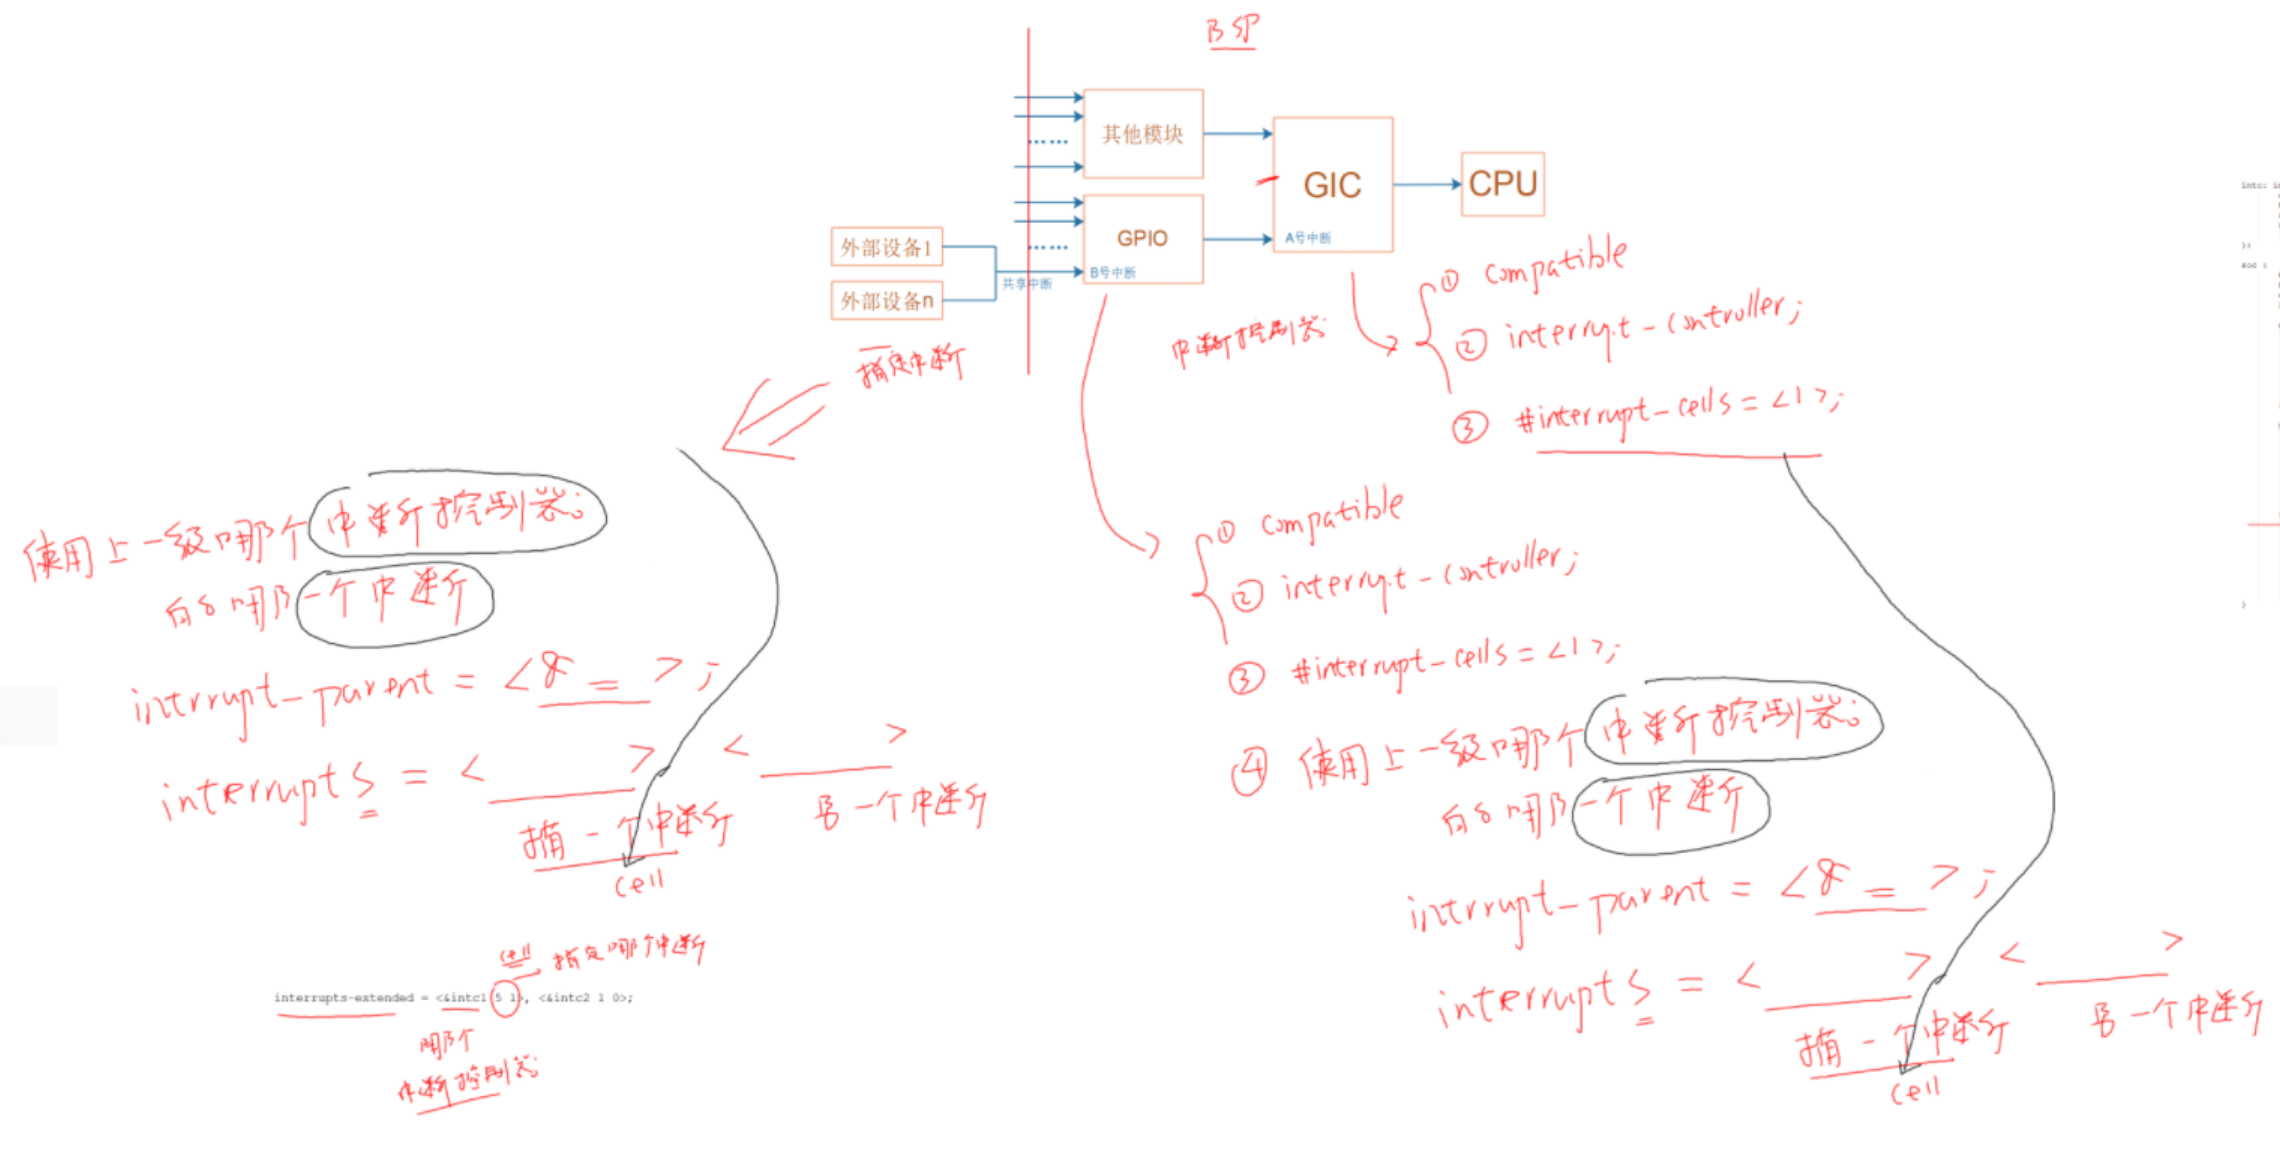 BSP
其他模块
GIC
CPU
外部设备1
GPIO
A号中断
B号中断
外部设备n
共享中断
指定中断
中断控制器
① compatible
② interrupt-controller;
③ #interrupt-cells = <1>;
使用上一级哪个中断控制器;
的哪一个中断
intrrupt-parent = <& = >;
interrupts = < > < >
指一个中断 另一个中断
cell
cell 指定哪个中断
interrupts-extended = <&intc1 5 1>, <&intc2 1 0>;
哪个
中断控制器
① compatible
② interrupt-controller;
③ #interrupt-cells = <1>;
④ 使用上一级哪个中断控制器;
的哪一个中断
intrrupt-parent = <& = >;
interrupts = < > < >
指一个中断 另一个中断
cell
intc: i
};
soc {
}